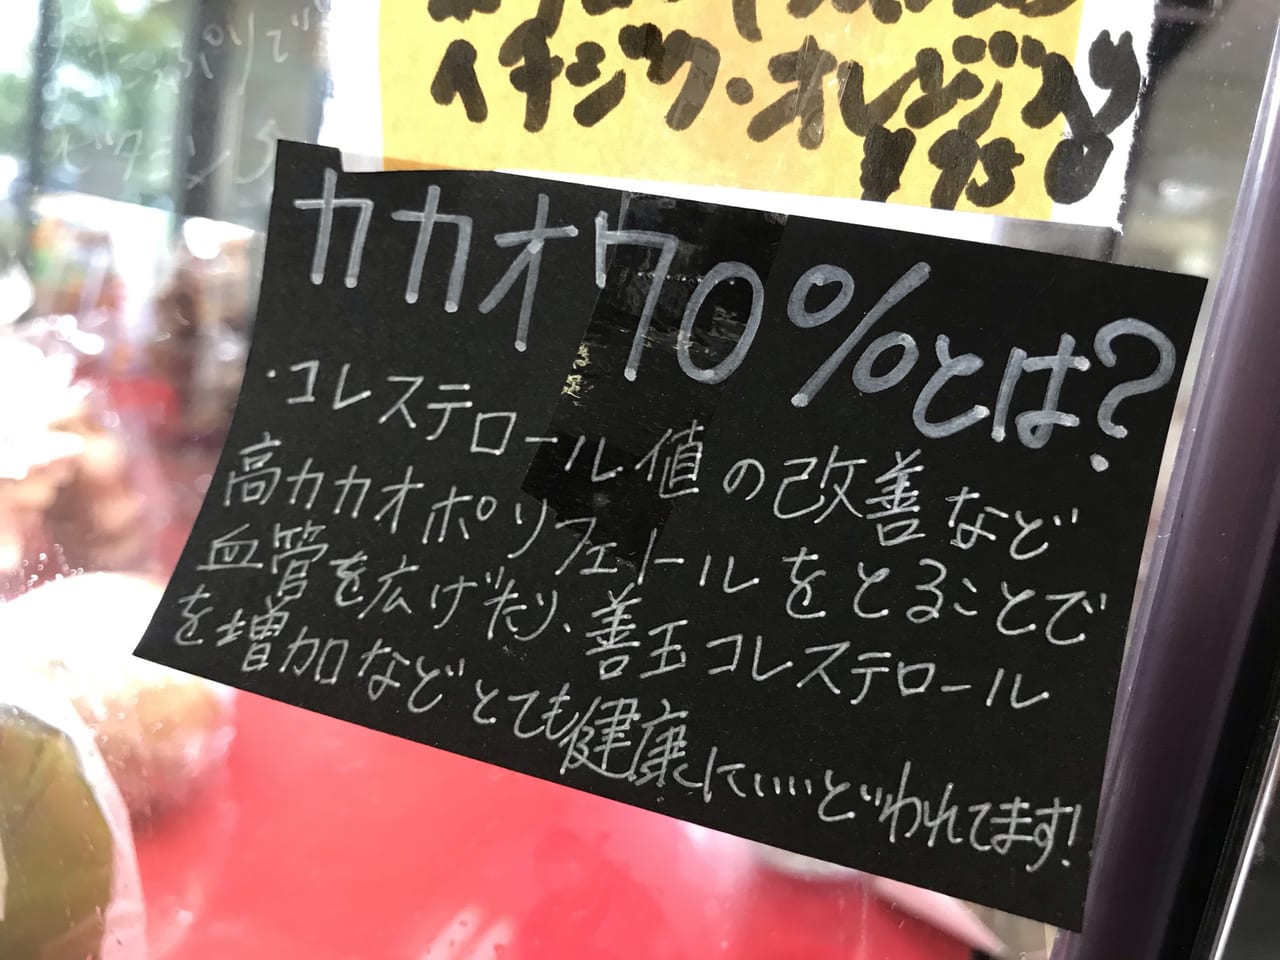 イチジク・オレンジ
カカオ70%とは?
・コレステロール値の改善など
高カカオポリフェノールをとることで
血管を広げたり、善玉コレステロール
を増加などとても健康にいいといわれてます!